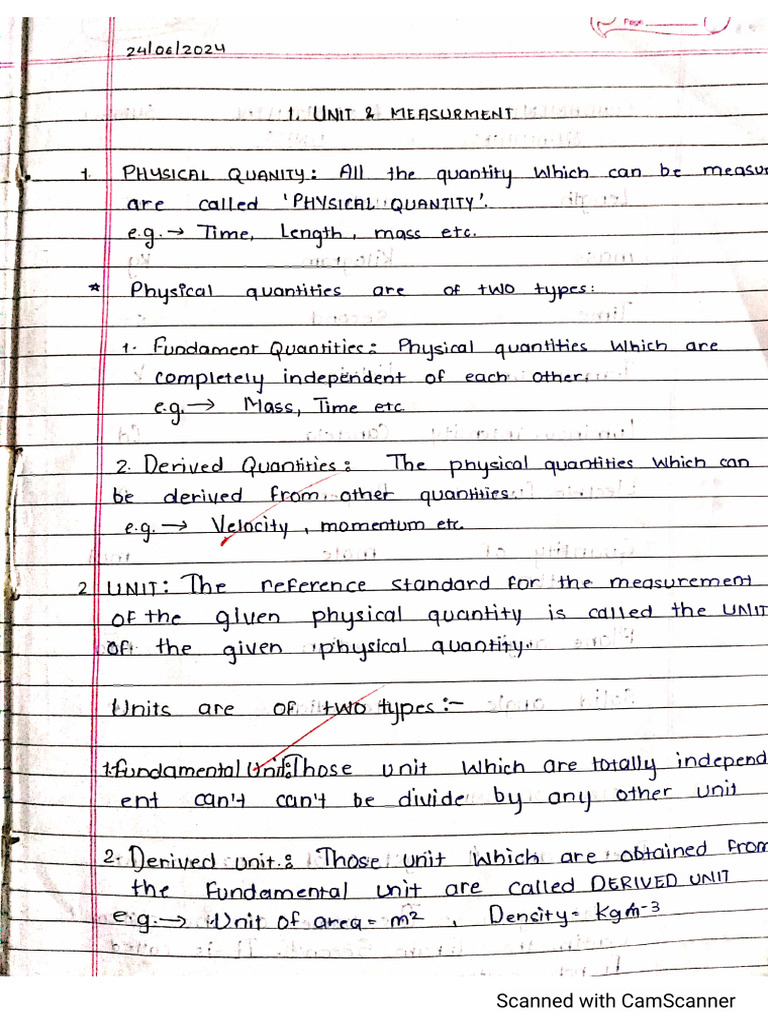 Page
24/06/2024
1. UNIT & MEASURMENT
1. PHYSICAL QUANITY: All the quantity which can be measur
are called 'PHYSICAL QUANTITY'.
e.g. → Time, Length, mass etc.
* Physical quantities are of two types:
1. Fundament Quantities: Physical quantities which are
completely independent of each other.
e.g. → Mass, Time etc
2. Derived Quantities: The physical quantities which can
be derived from other quantities.
e.g. → Velocity, momentum etc.
2 UNIT: The reference standard for the measurement
of the given physical quantity is called the UNIT
of the given physical quantity.
Units are of two types:-
1. Fundamental Unit: Those unit which are totally independ
ent can't can't be divide by any other unit
2. Derived unit.: Those unit which are obtained from
the fundamental unit are called DERIVED UNIT
e.g. → Unit of area = m², Dencity = Kgm⁻³
Scanned with CamScanner